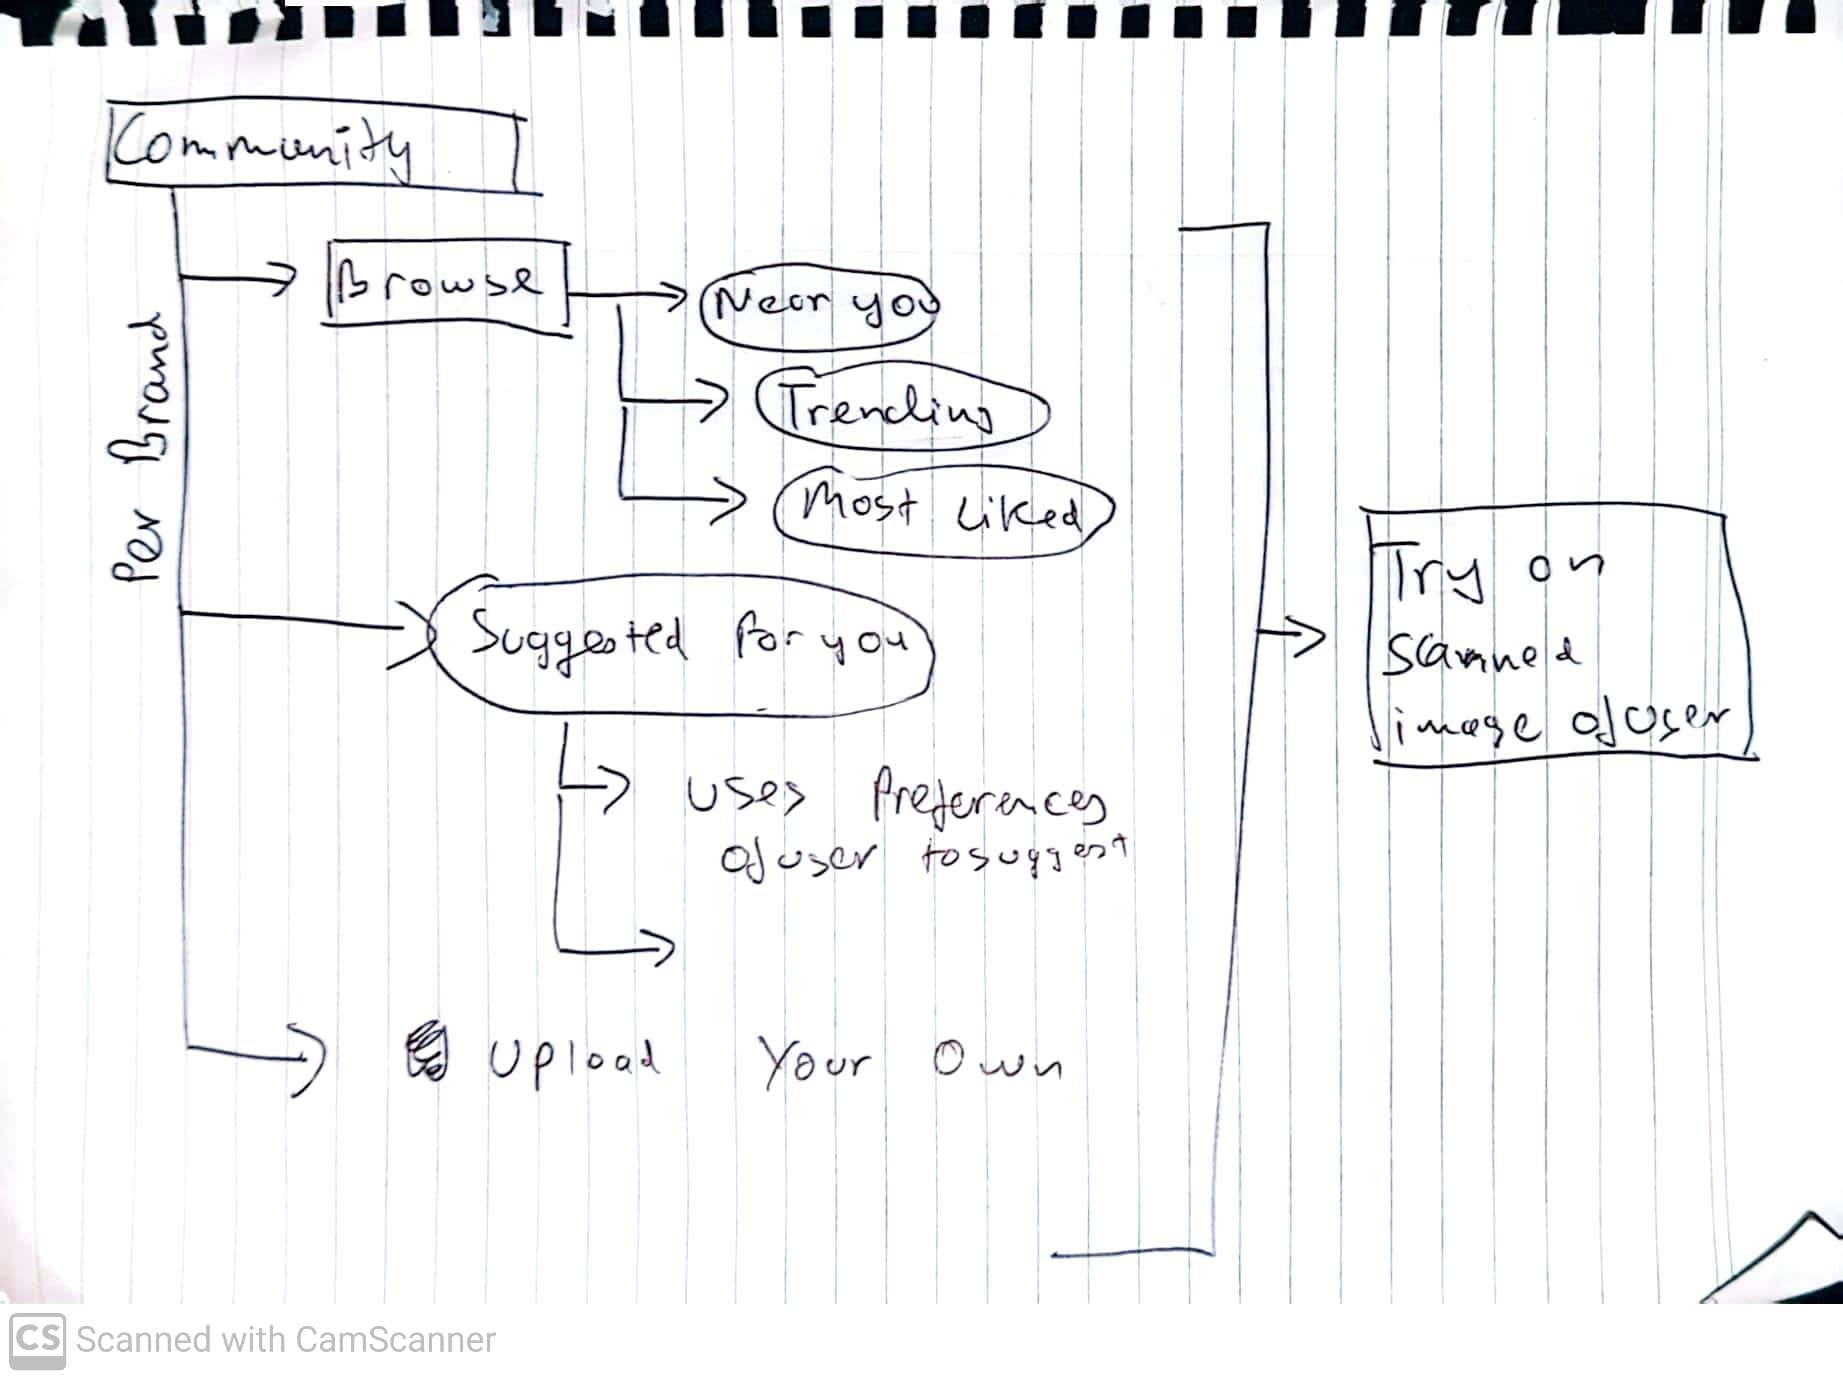 Community
Per Brand
Browse
Near you
Trending
Most Liked
Suggested for you
uses Preferences
of user to suggest
Upload Your Own
Try on
Scanned
image of user
CS Scanned with CamScanner